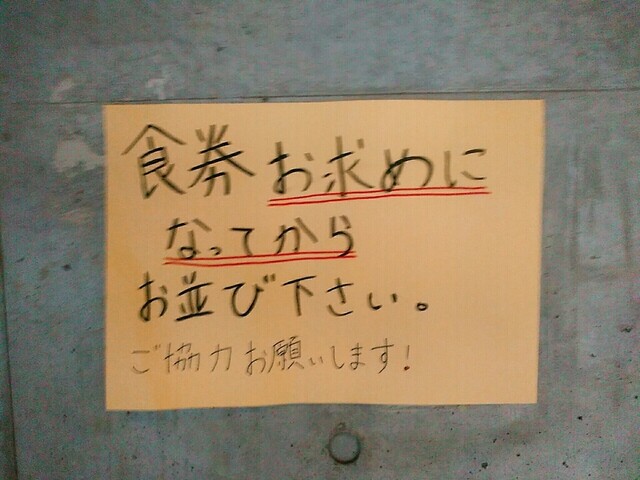 食券お求めに
なってから
お並び下さい。
ご協力お願いします!